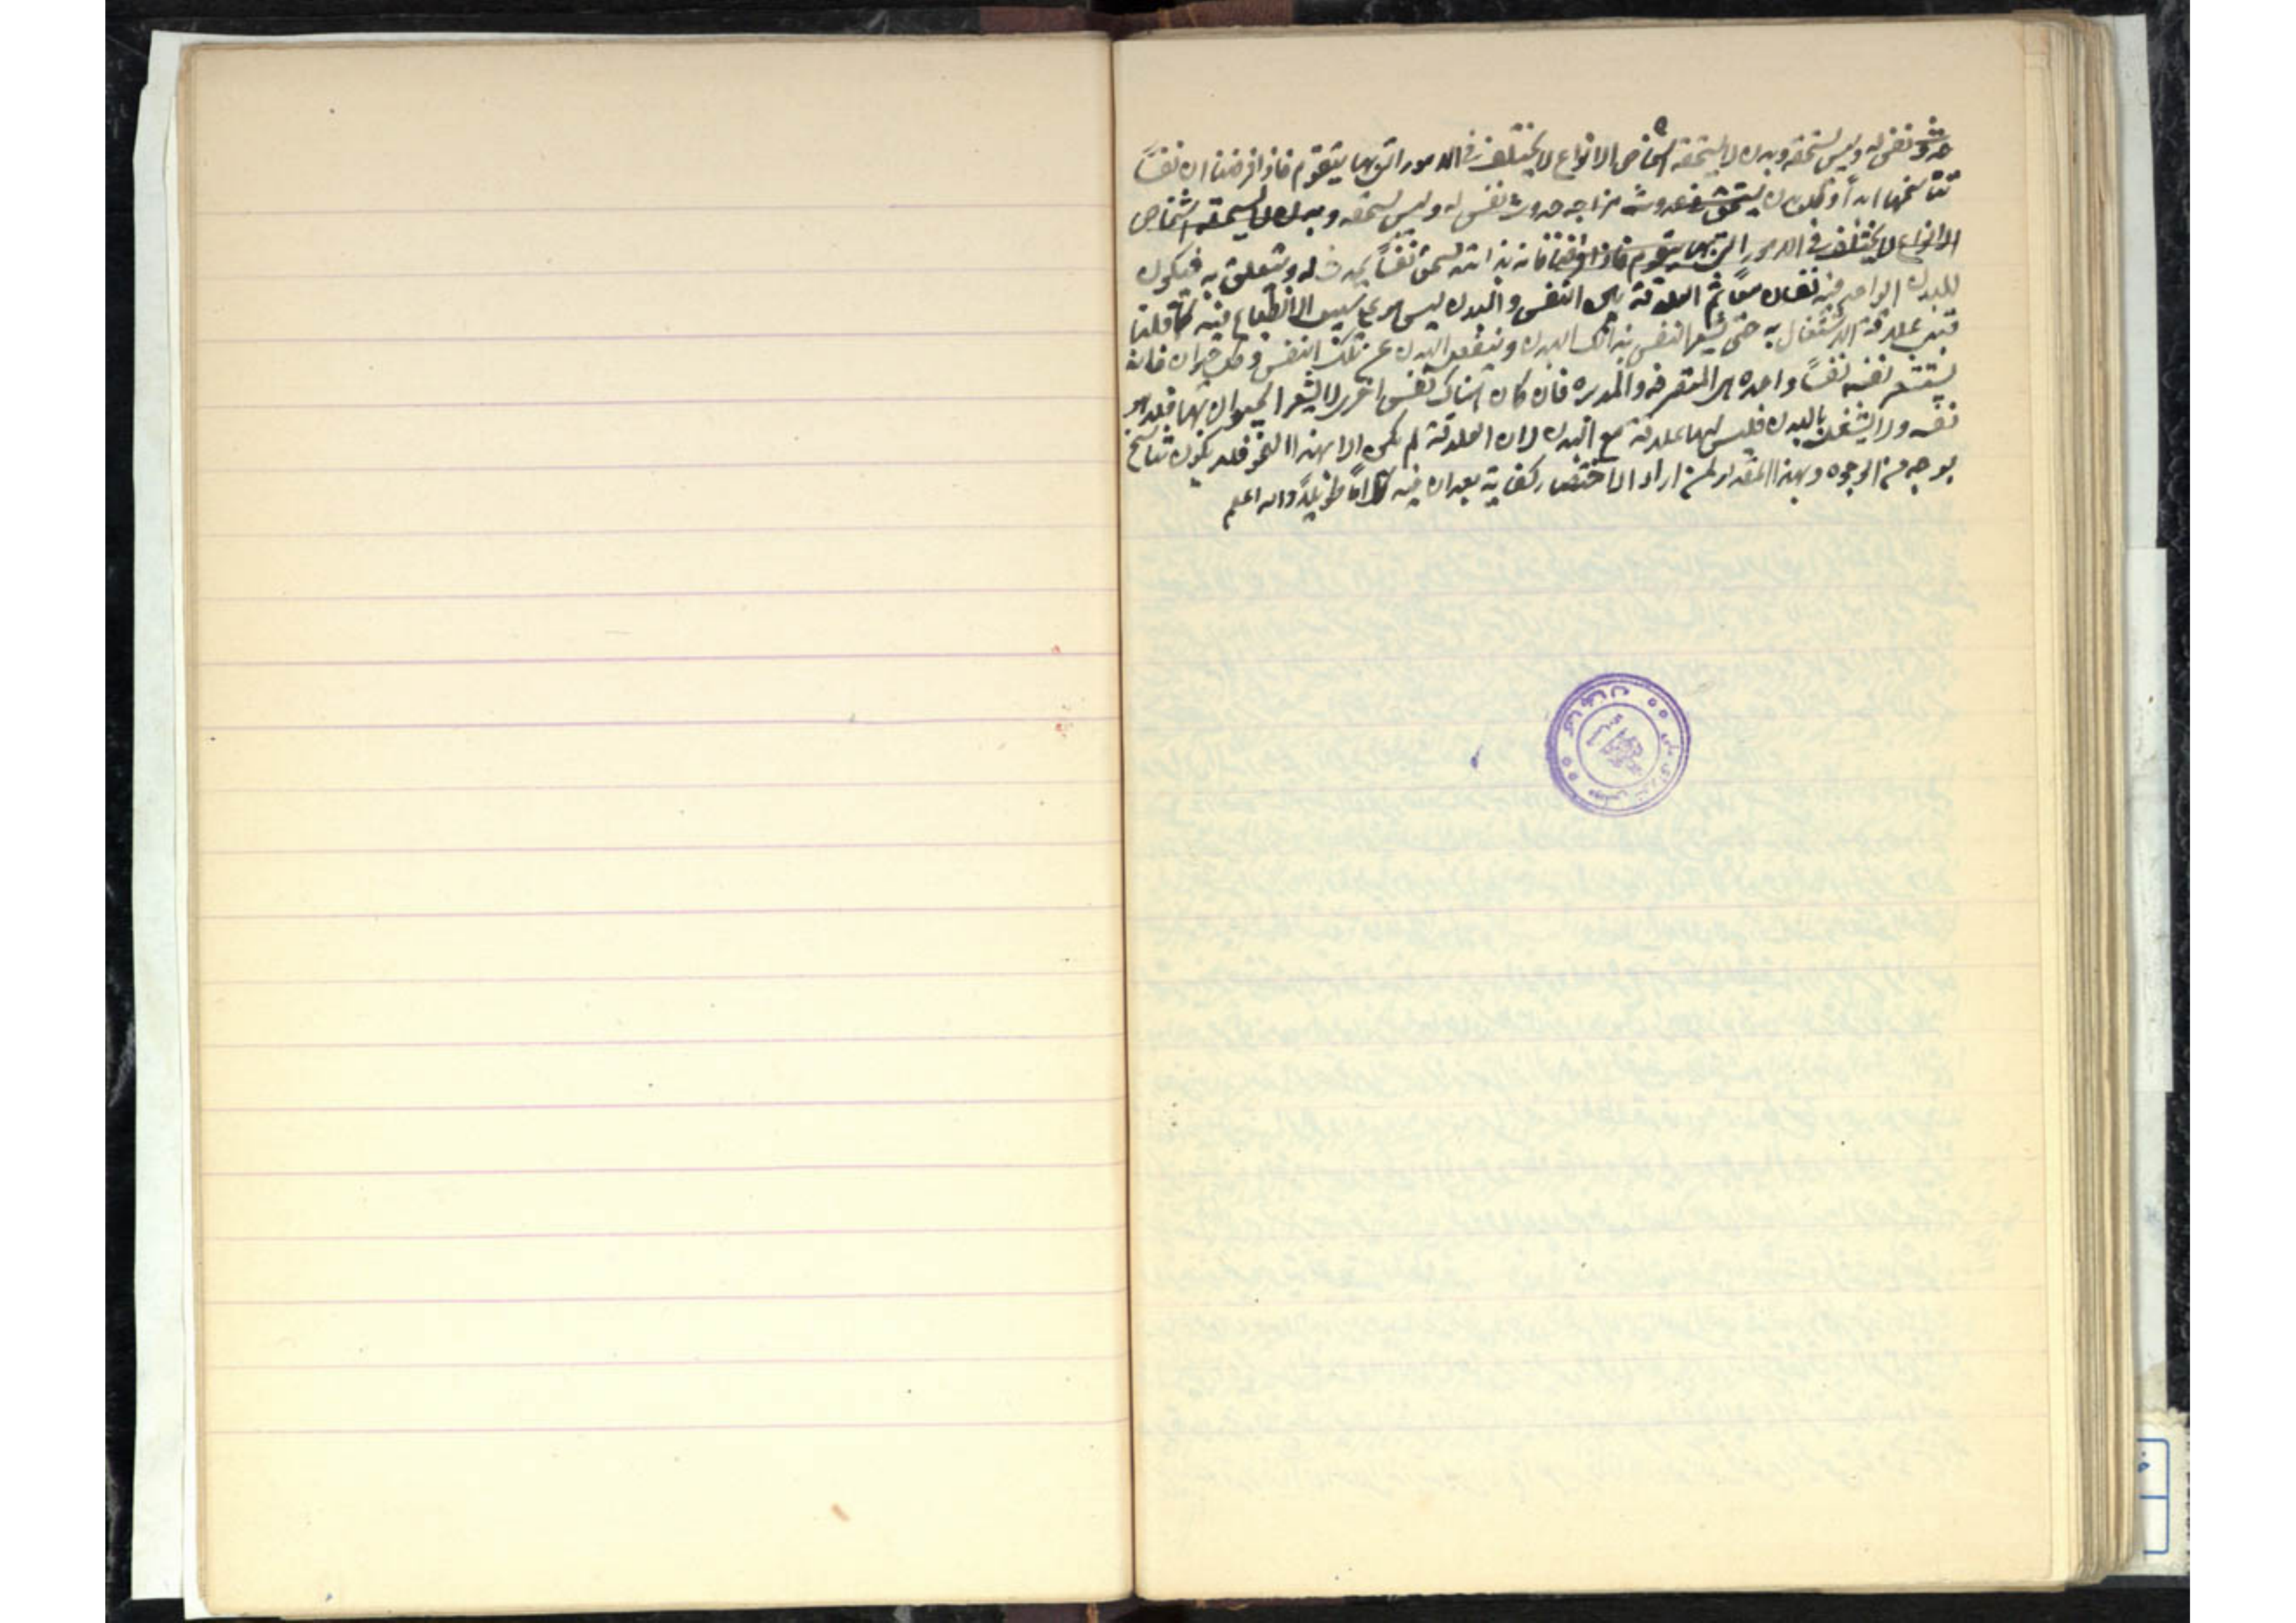 حدوث نفس له وليس يستحقه وبدن لا يستحقه اشخاص الانواع لا يختلف فى الامور التى بها يتقوم فاذا فرضنا ان نفساً
تناسخها ابداناً وكل بدن يستحق حدوث مزاجه حدوث نفس له وليس يستحقه وبدن لا يستحقه اشخاص
الانواع لا يختلف فى الامور التى بها يتقوم فاذا فرضنا فانه بذاته يستحق نفساً يحدث له ويتعلق به فيكون
للبدن الواحد فيه نفسان معاً ثم العلاقة بين النفس والبدن ليس هو على سبيل الانطباع فيه كما قلنا
علاقة الاشتغال به حتى تشعر النفس بذلك البدن وينفعل البدن عن تلك النفس وكل حيوان فانه
يستشعر نفسه نفساً واحدة هى المتصرفة والمدبرة فان كان هناك نفس اخرى لا يشعر الحيوان بها فلا هو
نفسه ولا يشتغل بالبدن فليس لها علاقة مع البدن لان العلاقة لم يكن الا بهذا النحو فلا يكون تناسخ
بوجه من الوجوه وبهذا المقدار لمن اراد الاختصار كفاية بعد ان فيه كلاماً طويلاً والله اعلم